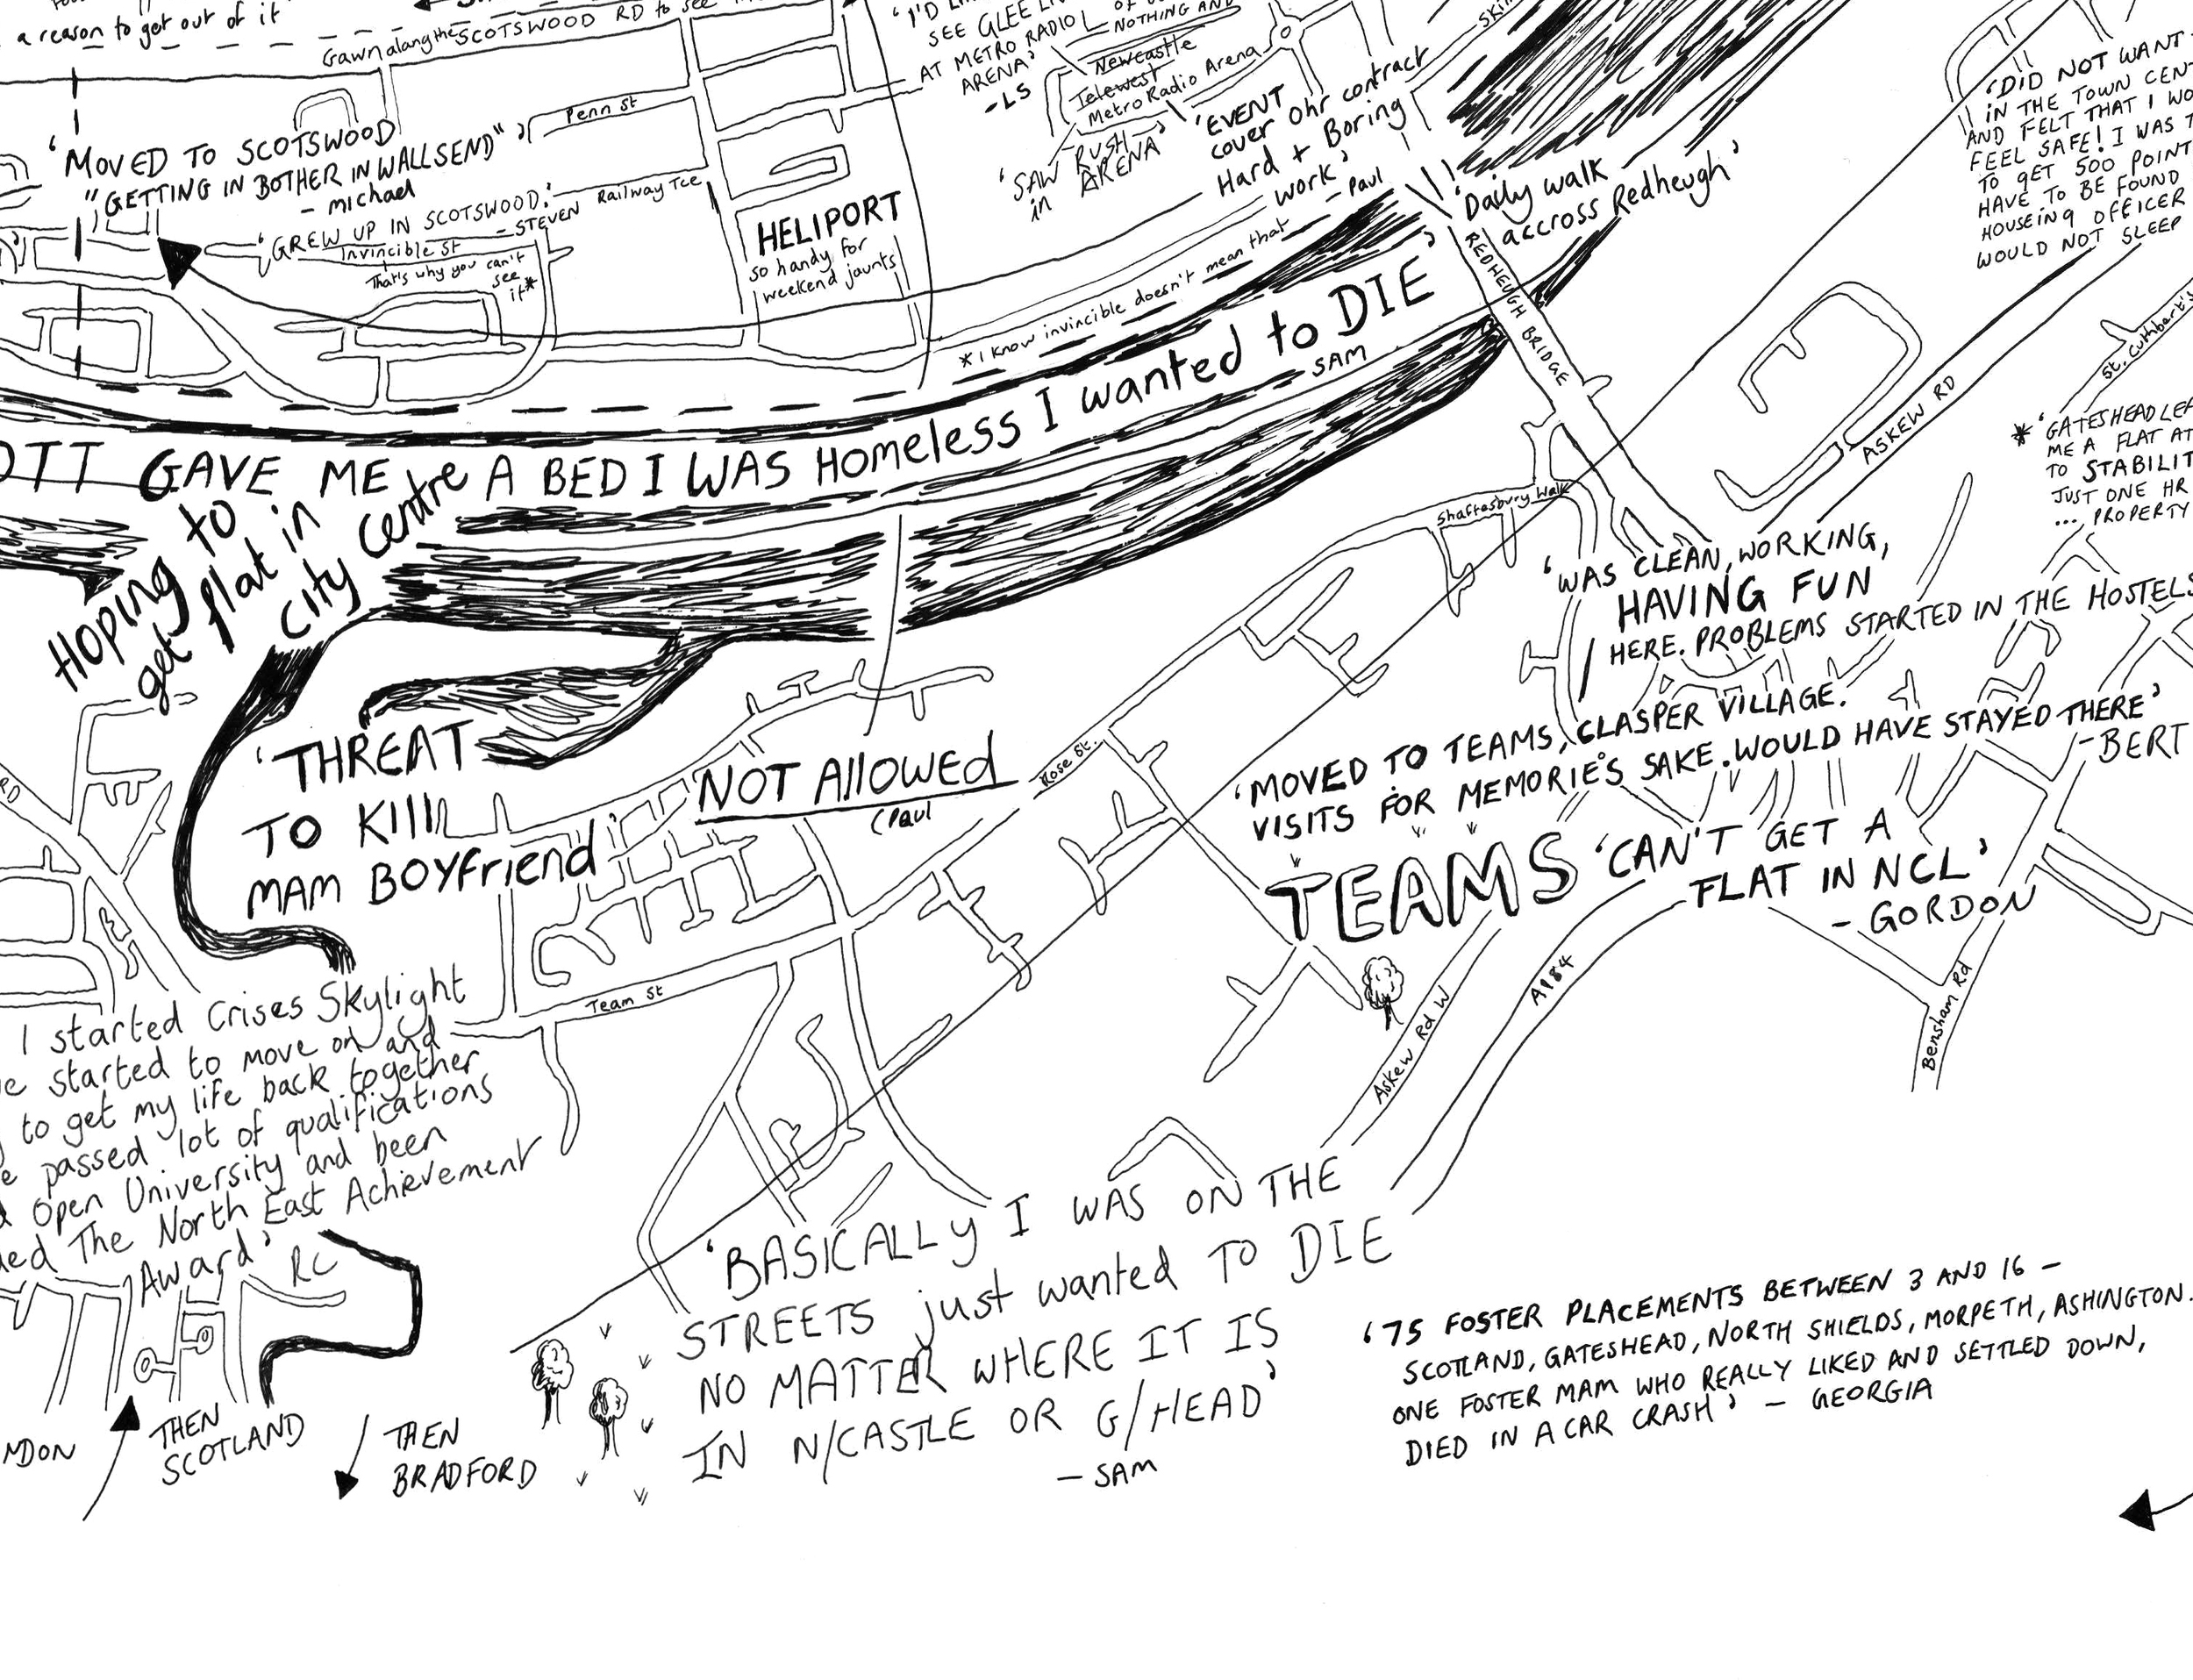 a reason to get out of it
Gawn alang the SCOTSWOOD RD to see
'MOVED TO SCOTSWOOD
"GETTING IN BOTHER IN WALLSEND"'
- michael
Penn St
'GREW UP IN SCOTSWOOD.'
- STEVEN
Railway Tce
Invincible St
That's why you can't
see
it*
HELIPORT
so handy for
weekend jaunts
SEE GLEE
AT METRO RADIO
ARENA'
- LS
NOTHING AND
Newcastle
Telewest
Metro Radio Arena
'SAW RUSH
in ARENA'
'EVENT
cover Ohr contract
Hard + Boring
work'
- Paul
*I know invincible doesn't mean that
'Daily walk
accross Redheugh'
REDHEUGH BRIDGE
'DID NOT WANT
IN THE TOWN CENT
AND FELT THAT I WO
FEEL SAFE! I WAS T
TO GET 500 POINT
HAVE TO BE FOUND
HOUSEING OFFICER
WOULD NOT SLEEP
St. Cuthbert's
ASKEW RD
* 'GATESHEAD LEA
ME A FLAT AT
TO STABILIT
JUST ONE HR
... PROPERTY
OTT GAVE ME A BED I WAS HOMELESS I wanted to DIE'
- SAM
Hoping to
get flat in
City centre
Shaftesbury Walk
'WAS CLEAN, WORKING,
HAVING FUN
HERE. PROBLEMS STARTED IN THE HOSTELS
'MOVED TO TEAMS, CLASPER VILLAGE.
VISITS FOR MEMORIE'S SAKE. WOULD HAVE STAYED THERE'
- BERT
'THREAT
TO KIll
MAM BOYfriend'
NOT AllowEd
(Paul
Rose St.
RD
TEAMS
'CAN'T GET A
FLAT IN NCL'
- GORDON
Team St
Askew Rd W
A184
Bensham Rd
I started Crises Skylight
e started to move on and
to get my life back together
e passed lot of qualifications
Open University and been
ded The North East Achievement
Award'
RC
'BASICALLY I WAS ON THE
STREETS just wanted TO DIE
NO MATTER WHERE IT IS
IN N/CASTLE OR G/HEAD'
- SAM
'75 FOSTER PLACEMENTS BETWEEN 3 AND 16 -
SCOTLAND, GATESHEAD, NORTH SHIELDS, MORPETH, ASHINGTON.
ONE FOSTER MAM WHO REALLY LIKED AND SETTLED DOWN,
DIED IN A CAR CRASH' - GEORGIA
NDON
THEN
SCOTLAND
THEN
BRADFORD